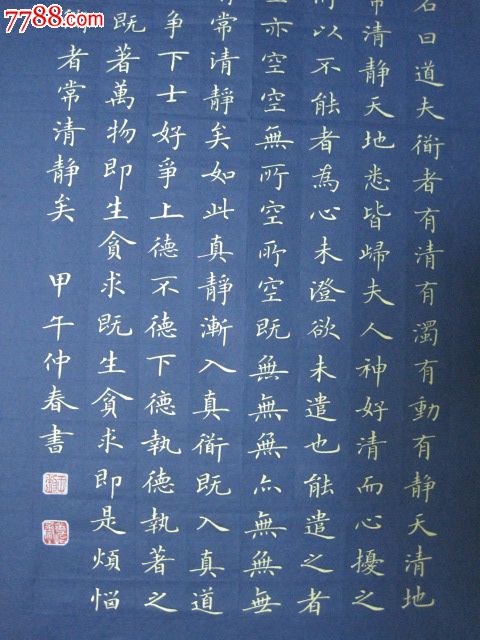 7788.com
名曰道夫衜者有清有濁有動有靜天清地
常清靜天地悉皆歸夫人神好清而心擾之
所以不能者為心未澄欲未遣也能遣之者
亦空空無所空所空既無無無亦無無無
常清靜矣如此真靜漸入真衜既入真道
爭下士好爭上德不德下德執德執著之
既著萬物即生貪求既生貪求即是煩惱
者常清靜矣 甲午仲春書